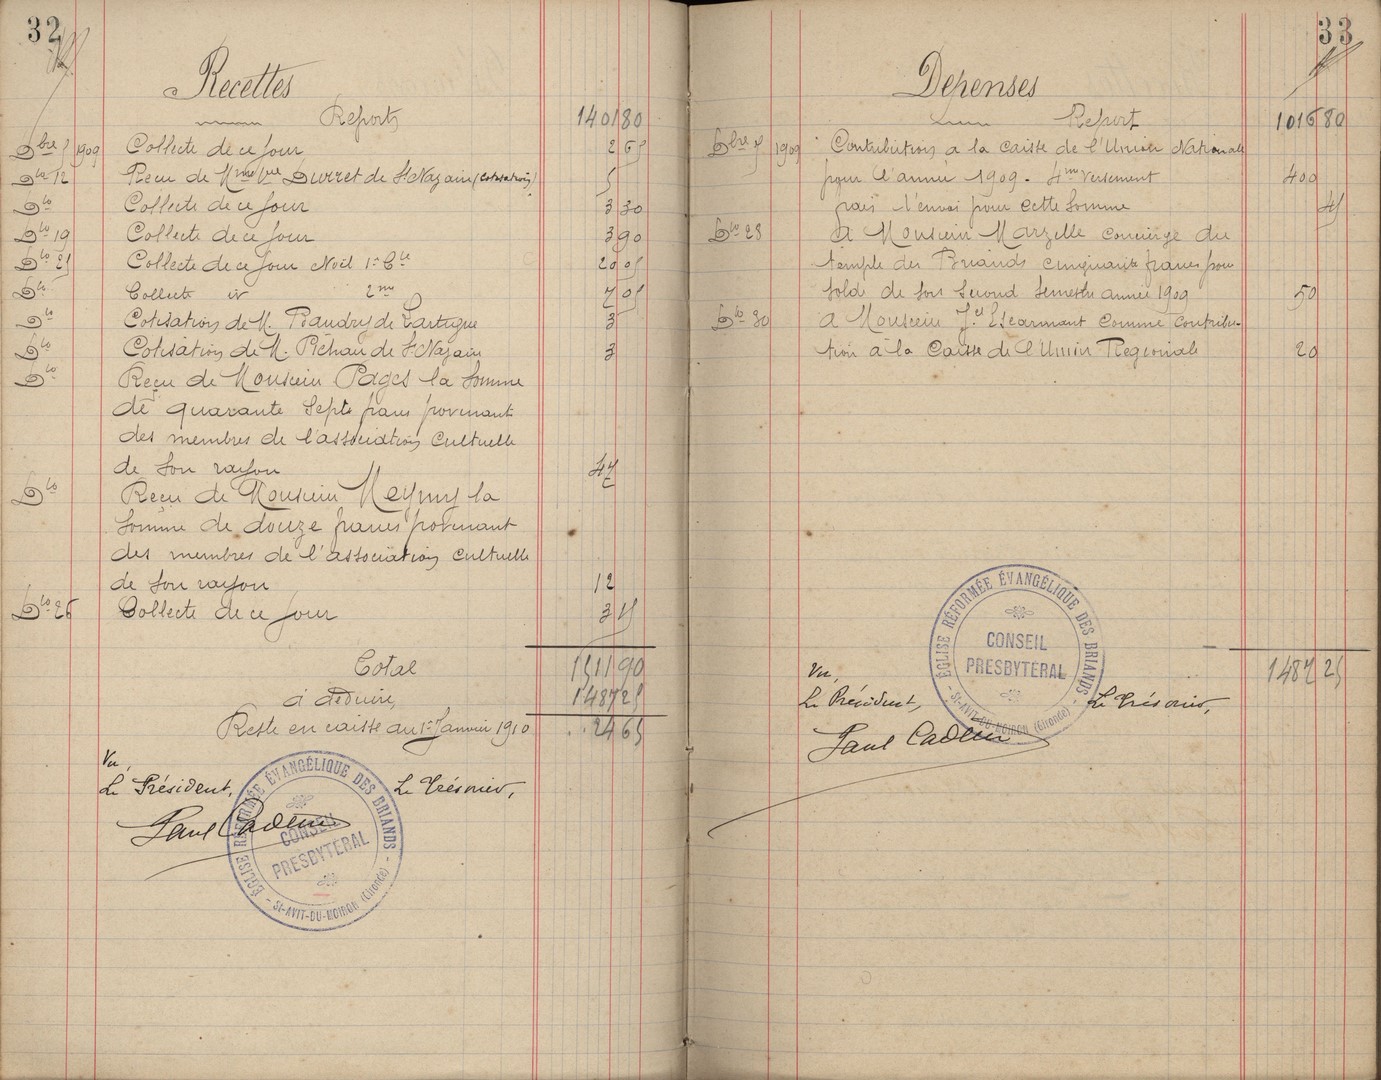 32
Recettes
Report 1401 80
Dbre 5 1909 Collecte de ce Jour 2 65
Dto 12 Reçu de Mme Vve Durret de St Nazaire (Cotisation) 5
Dto Collecte de ce Jour 3 30
Dto 19 Collecte de ce Jour 3 90
Dto 25 Collecte de ce Jour Noël 1re Cte 20 05
Dto Collecte 2me 7 05
Dto Cotisation de M. Baudry de Lartigue 3
Dto Cotisation de M. Rehau de St Nazaire 3
Dto Reçu de Monsieur Pages la Somme
de quarante Sept francs provenant
des membres de l'association Cultuelle
de Son rayon 47
Dto Reçu de Monsieur Meymy la
Somme de douze francs provenant
des membres de l'association Cultuelle
de Son rayon 12
Dto 26 Collecte de ce Jour 3 15
Total 1511 90
à déduire, 1487 25
Reste en caisse au 1er Janvier 1910 . . 24 65
Vu,
Le Président, Le Trésorier,
Paul Cadène
ÉGLISE RÉFORMÉE ÉVANGÉLIQUE DES BRIANDS
CONSEIL
PRESBYTÉRAL
- St-AVIT-DU-MOIRON (Gironde) -
33
Depenses
Report 1016 80
Dbre 5 1909 Contribution a la caisse de l'Union Nationale
pour l'année 1909. 4me versement 400
frais l'envoi pour cette Somme 45
Dto 28 à Monsieur Marzelle concierge du
temple des Briands cinquante francs pour
Sold de Son Second Semestre année 1909 50
Dto 30 à Monsieur Escarmant Comme Contribu-
tion à la Caisse de l'Union Regionale 20
1487 25
Vu,
Le Président, Le Trésorier,
Paul Cadène
ÉGLISE RÉFORMÉE ÉVANGÉLIQUE DES BRIANDS
CONSEIL
PRESBYTÉRAL
- St-AVIT-DU-MOIRON (Gironde) -